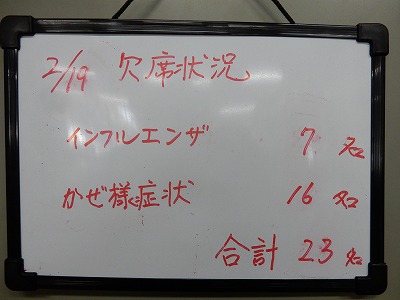 2/19 欠席状況
インフルエンザ 7名
かぜ様症状 16名
合計 23名